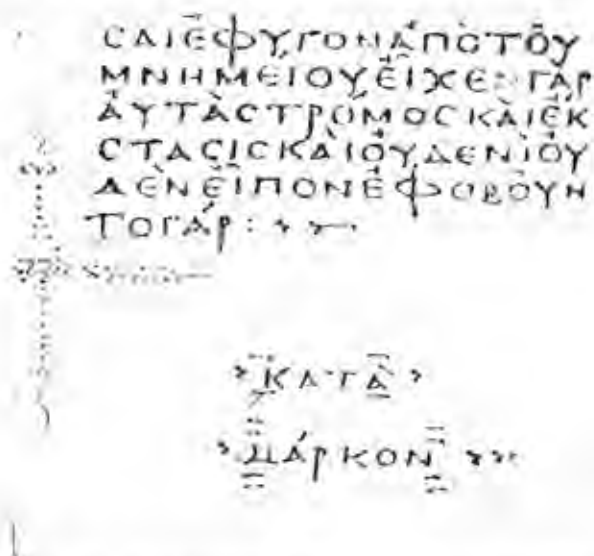 ϹΑΙΕΦΥΓΟΝΑΠΟΤΟΥ
ΜΝΗΜΕΙΟΥΕΙΧΕΓΑΡ
ΑΥΤΑϹΤΡΟΜΟϹΚΑΙΕΚ
ϹΤΑϹΙϹΚΑΙΟΥΔΕΝΙΟΥ
ΔΕΝΕΙΠΟΝΕΦΟΒΟΥΝ
ΤΟΓΑΡ:
ΚΑΤΑ
ΜΑΡΚΟΝ